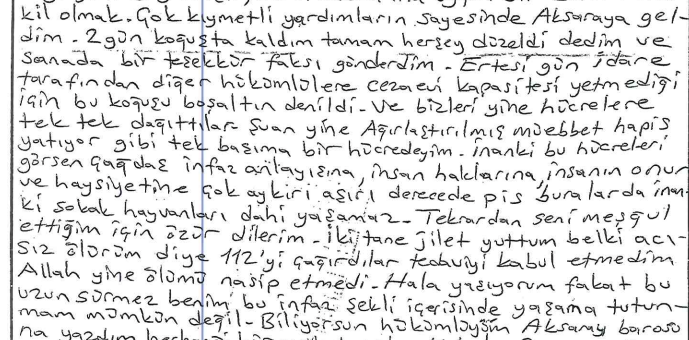 kil olmak. Çok kıymetli yardımların sayesinde Aksaraya gel-
dim. 2 gün koğuşta kaldım tamam herşey düzeldi dedim ve
Sanada bir teşekkür faksı gönderdim. Ertesi gün idare
tarafından diğer hükümlülere cezaevi kapasitesi yetmediği
için bu koğuşu boşaltın denildi. Ve bizleri yine hücrelere
tek tek dağıttılar. Şuan yine Ağırlaştırılmış müebbet hapis
yatıyor gibi tek başıma bir hücredeyim. inanki bu hücreleri
görsen çağdaş infaz anlayışına, insan haklarına, insanın onur
ve haysiyetine çok aykırı aşırı derecede pis buralarda inan-
ki sokak hayvanları dahi yaşamaz. Tekrardan seni meşgul
ettiğim için özür dilerim. İki tane jilet yuttum belki acı-
sız ölürüm diye 112'yi çağırdılar tedaviyi kabul etmedim
Allah yine ölümü nasip etmedi. Hala yaşıyorum fakat bu
uzun sürmez benim bu infaz şekli içerisinde yaşama tutun-
mam mümkün değil. Biliyorsun hükümlüyüm Aksaray barosu
na yazdım